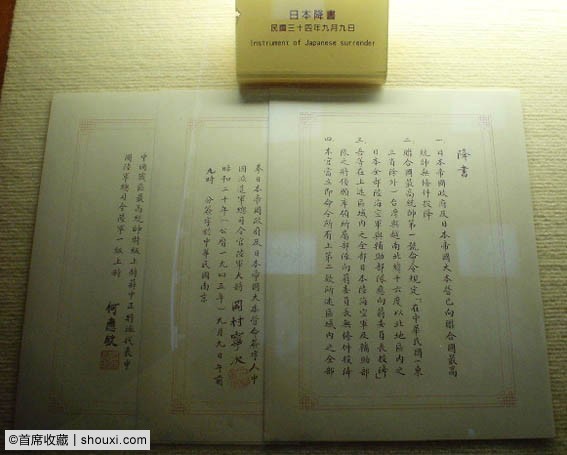 日本降書
民國三十四年九月九日
Instrument of Japanese surrender
降書
一 日本帝國政府及日本帝國大本營已向聯合國最高
統帥無條件投降
二 聯合國最高統帥第一號命令規定「在中華民國(東
三省除外)台灣與越南北緯十六度以北地區內之
日本全部陸海空軍與輔助部隊應向蔣委員長投降」
三 吾等在上述區域內之全部日本陸海空軍及輔助部
隊之將領願率領所屬部隊向蔣委員長無條件投降
四 本官當立即命令所有上第二款所述區域內之全部
奉日本帝國政府及日本帝國大本營命簽字人中
國派遣軍總司令官陸軍大將 岡村寧次
昭和二十年(公曆一九四五年)九月九日午前
九時 分簽字於中華民國南京
中國戰區最高統帥特級上將蔣中正特派代表中
國陸軍總司令陸軍一級上將
何應欽
©首席收藏 | shouxi.com